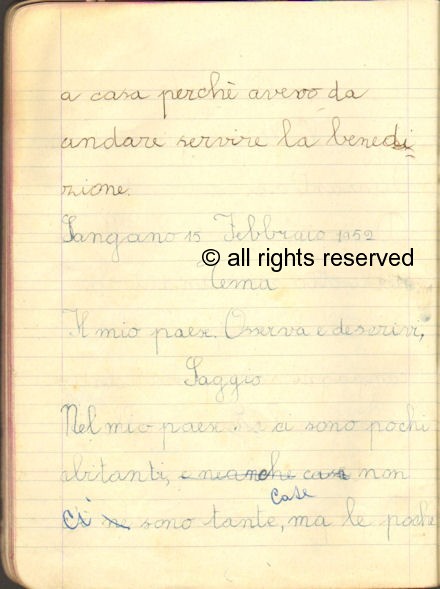 a casa perchè avevo da
andare servire la benedi
zione.
Sangano 15 Febbraio 1952
© all rights reserved
Tema
Il mio paese. Osserva e descrivi,
Saggio
Nel mio paese ci sono pochi
abitanti, e neanche case non
case
ci ne sono tante, ma le poche